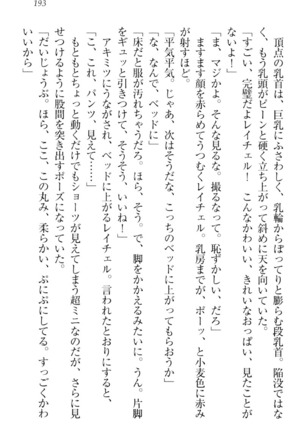 193
頂点の乳首は、巨乳にふさわしく、乳輪からぽってりと膨らむ段乳首。陥没ではな
く、もう乳頭がピーンと硬く立ち上がって斜めに天を向いていた。
「すごい、完璧だよレイチェル！　こんなかわいい、きれいなおっぱい、見たことが
ないよ！」
「ま、マジかよ。そんな見るな。撮るなって。恥ずかしい、だろ」
ますます顔を赤らめてうつむくレイチェル。乳房までが、ポーッと小麦色に赤みが
射すほど。
「平気平気。じゃあ、次はそうだな、こっちのベッドに上がってもらおうか」
「な、なんで、ベッドに」
「床だと服が汚れちゃうだろ。ほら、そう。で、脚をかかえるみたいに。うん。片脚
をギュッと引きつけて、そうそう、いいね！」
アキミツにうながされ、ベッドに上がるレイチェル。言われたとおりにすると、
「こ、これ、パンツ、見えて……」
もともとちょっと動くだけでもショーツが見えてしまう超ミニなのだが、さらに見
せつけるように股間を突き出すポーズになっていた。
「だいじょうぶ。ほら、ここ、この丸み、柔らかい、ぷにぷにしてる。すっごくかわ
いいから」